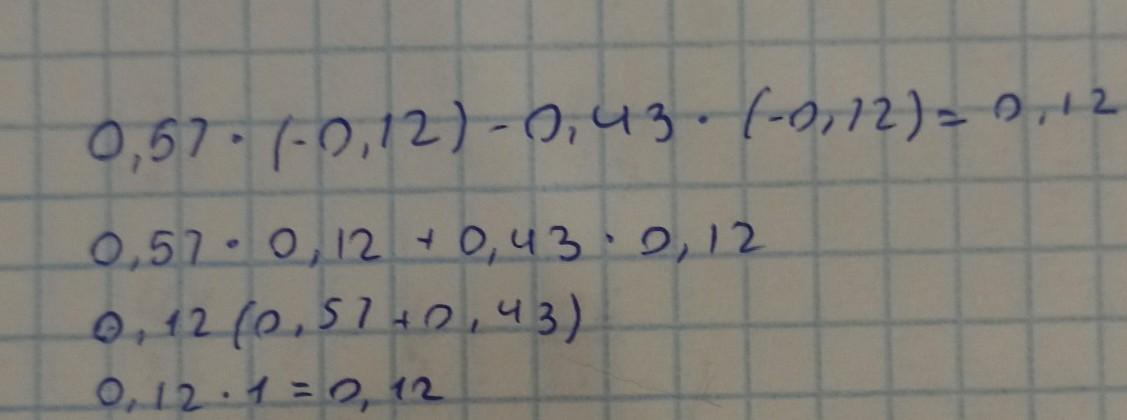 0,57 · (-0,12) - 0,43 · (-0,12) = 0,12
0,57 · 0,12 + 0,43 · 0,12
0,12 (0,57 + 0,43)
0,12 · 1 = 0,12